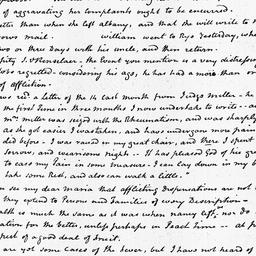 of aggravating her complaints ought to be incurred.
better than when she left albany, and that she will write to
rows mail. William went to Rye Yesterday, where
two or three Days with his uncle, and then return.
S. VRenselaer. the Event you mention is a very distressing
regretted. considering his age, he has had a more than
of affliction.
rec'd a Letter of the 14 last month from Judge Miller - he
the first Time in three months I now undertake to write - a
Mrs. Miller was seized with the Rheumatism, and was sharply
as she got easier I was taken, and have undergone more pain
did before. I was raised in my great chair, and there I spent
sorrow, and wearisome nights - It has pleased God of his gr
to ease my Pain in some measure. I can lay down in my b
take some Rest, and also can walk a little."
see my dear maria that afflicting Dispensations are not
they extend to Persons and Families of every Description -
is much the same as it was when nancy left us. nor do
for the better, unless perhaps in Peach Time - at
of a good deal of Fruit.
are yet some Cases of the Fever, but I have not heard of